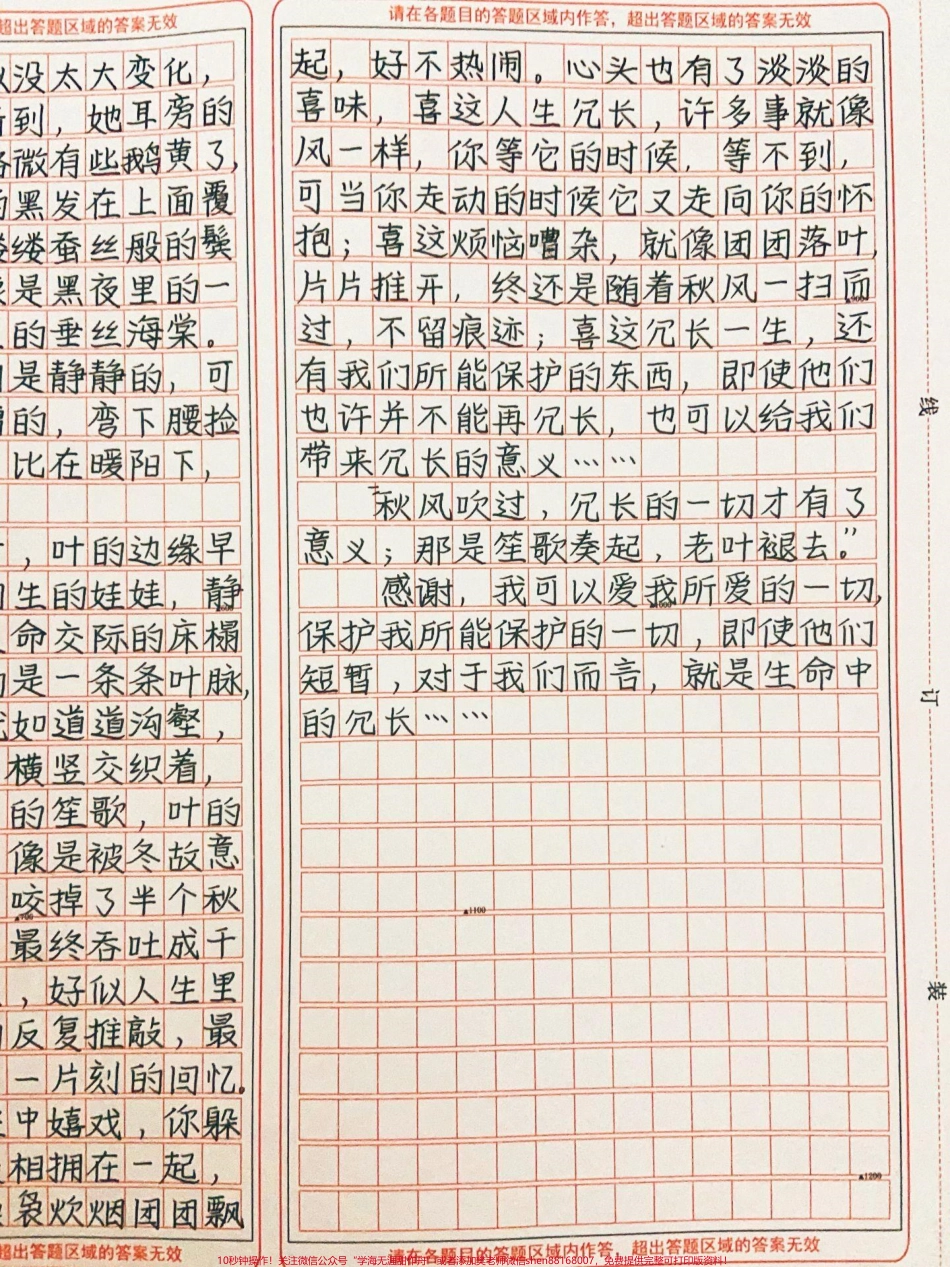 超出答题区域的答案无效
没太大变化，
到，她耳旁的
微有些鹅黄了，
黑发在上面覆
缕蚕丝般的鬓
是黑夜里的一
的垂丝海棠。
是静静的，可
的，弯下腰捡
比在暖阳下，
，叶的边缘早
生的娃娃，静
命交际的床榻
是一条条叶脉，
如道道沟壑，
横竖交织着，
的笙歌，叶的
像是被冬故意
咬掉了半个秋
▲700
最终吞吐成千
，好似人生里
反复推敲，最
一片刻的回忆。
中嬉戏，你躲
相拥在一起，
袅炊烟团团飘
超出答题区域的答案无效
请在各题目的答题区域内作答，超出答题区域的答案无效
起，好不热闹。心头也有了淡淡的
喜味，喜这人生冗长，许多事就像
风一样，你等它的时候，等不到，
可当你走动的时候它又走向你的怀
抱；喜这烦恼嘈杂，就像团团落叶，
片片推开，终还是随着秋风一扫而
▲900
过，不留痕迹；喜这冗长一生，还
有我们所能保护的东西，即使他们
也许并不能再冗长，也可以给我们
带来冗长的意义……
秋风吹过，冗长的一切才有了
意义；那是笙歌奏起，老叶褪去。”
感谢，我可以爱我所爱的一切，
▲1000
保护我所能保护的一切，即使他们
短暂，对于我们而言，就是生命中
的冗长……
▲1100
▲1200
请在各题目的答题区域内作答，超出答题区域的答案无效
线
订
装